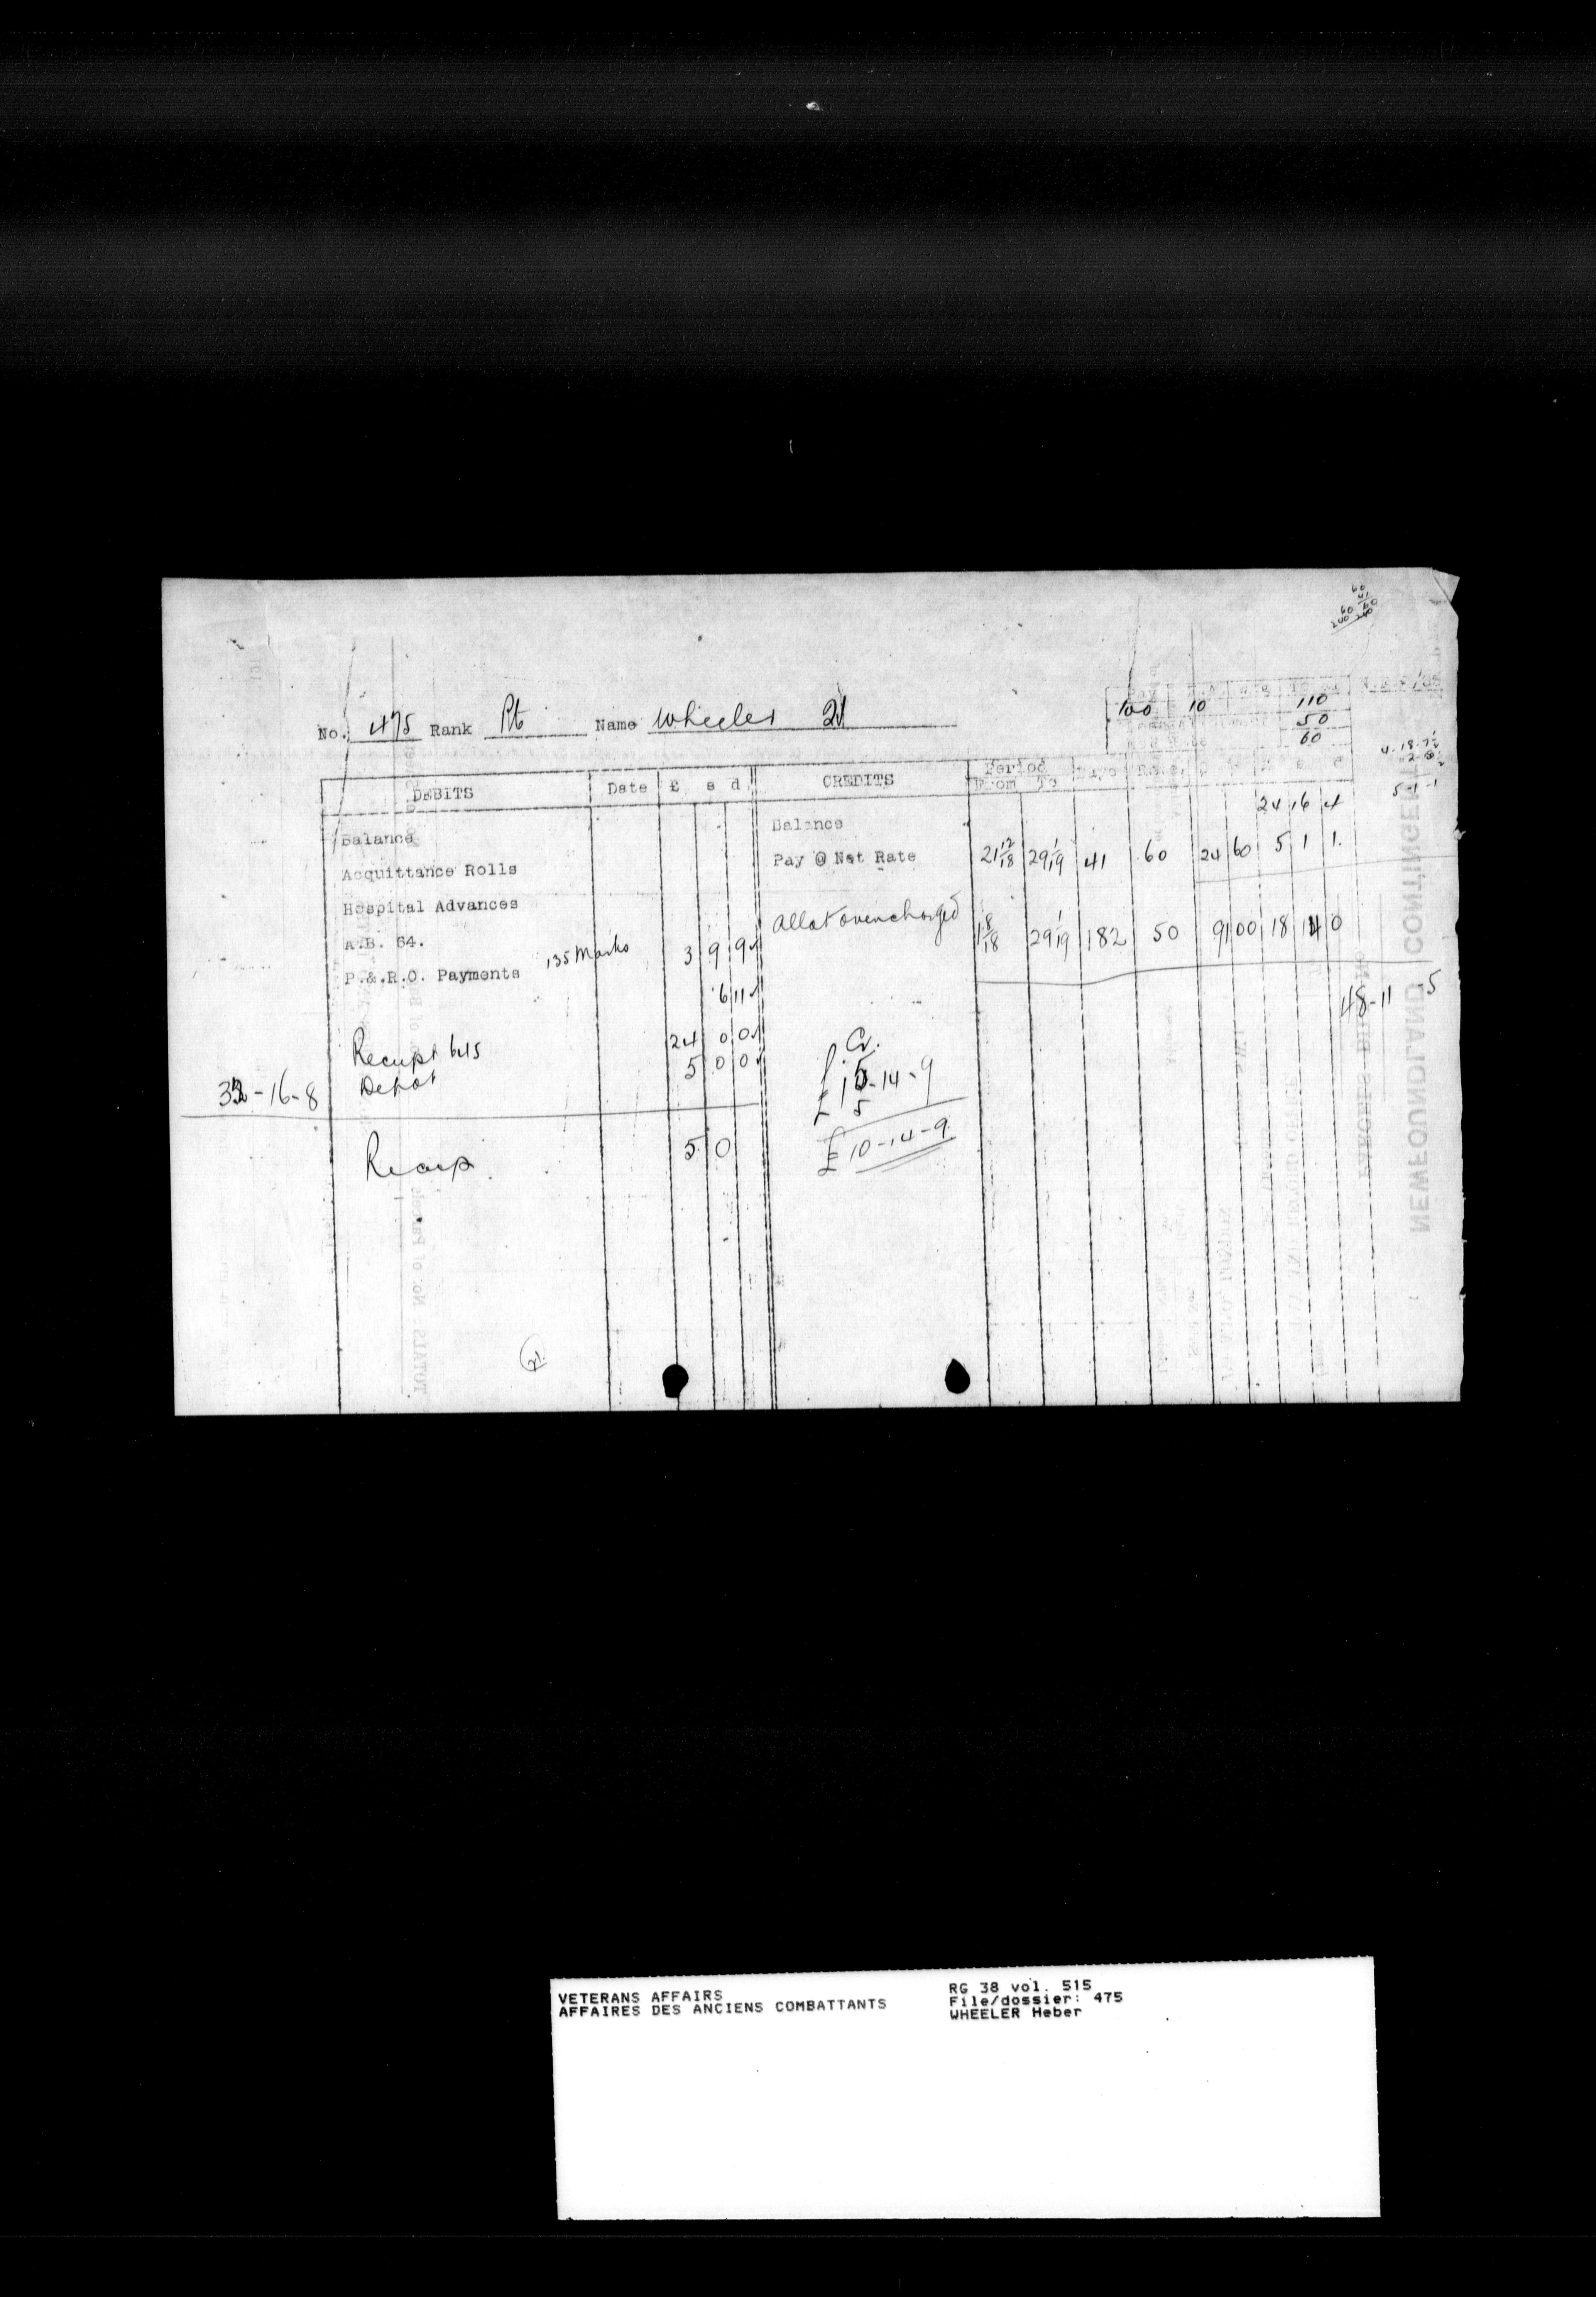 60
41
60
60 240
240
No. 475 Rank Pte Name Wheeler
Pay F.A. Wkg Total
1.00 10 110
50
Net Rate 60
4-18-7½
5-1-1
DEBITS Date £ s d CREDITS Period From To Days Rate £ s d
Balance Balance 24 16 4
Acquittance Rolls Pay @ Net Rate 21 12/18 29 1/19 41 60 24 60 5 1 1
Hospital Advances
A.B. 64. Allot overcharged 1 8/18 29 1/19 182 50 91 00 18 14 0
P.&.R.O. Payments 135 Marks 3 9 9
6 11
48-11-5
Receipt 645 24 0 0
Depot 5 0 0
32-16-8
Cr.
£15-14-9
5
£10-14-9
5 0
21
NEWFOUNDLAND CONTINGENT
TOTALS: No. of Parcels
VETERANS AFFAIRS
AFFAIRES DES ANCIENS COMBATTANTS
RG 38 vol. 515
File/dossier: 475
WHEELER Heber